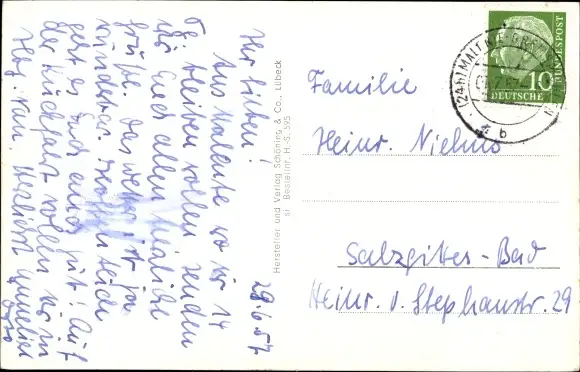 29.6.57
Ihr Lieben!
Aus Malente wo wir 14
Tg. bleiben wollen senden
wir Euch allen herzliche
Grüße. Das Wetter ist ja
wunderbar. Hoffen beide
geht es Euch auch gut! Auf
der Rückfahrt wollen wir in
Herzlichst Annelies
Hersteller und Verlag Schöning & Co., Lübeck
Bestellnr. H.-S. 595
DEUTSCHE BUNDESPOST
10
(24b) MALENTE
b
Familie
Heinr.
Salzgitter-Bad
Heinr. v. Stephanstr. 29